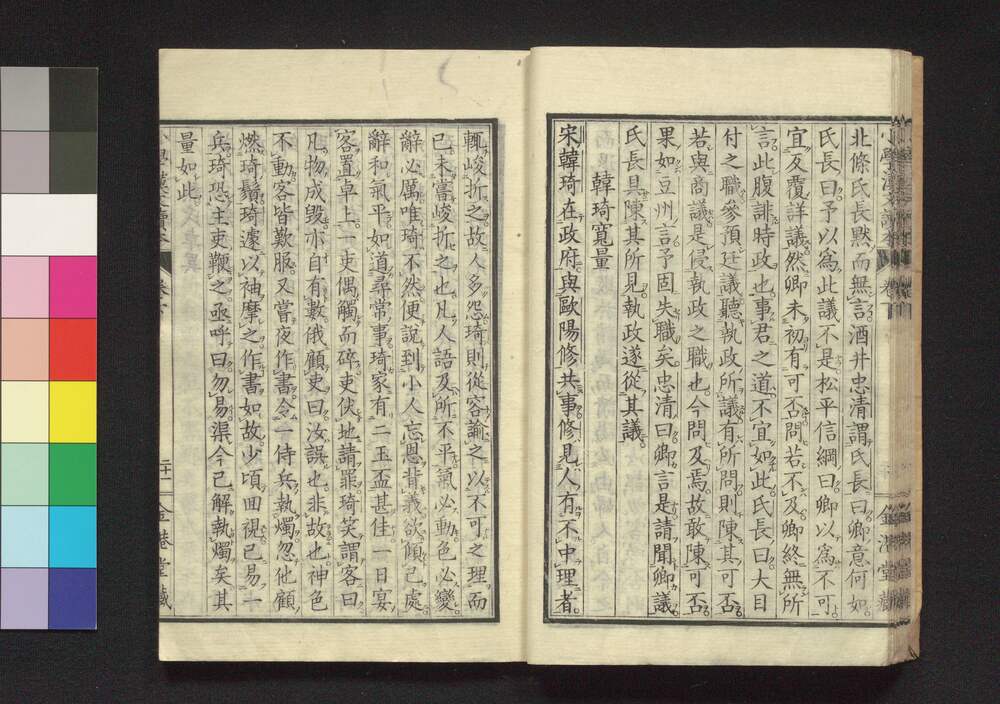 北條氏長默而無言酒井忠清謂氏長曰卿意何如
氏長曰予以爲此議不是松平信綱曰卿以爲不可
宜反覆詳議然卿未初有可否問若不及卿終無所
言此腹誹時政也事君之道不宜如此氏長曰大目
付之職參預廷議聽執政所議有所問則陳其可否
若與商議是侵執政之職也今問及焉故敢陳可否
果如豆州言予固失職矣忠清曰卿言是請聞卿議
氏長具陳其所見執政遂從其議
韓琦寬量
宋韓琦在政府與歐陽修共事修見人有不中理者
輒峻折之故人多怨琦則從容諭之以不可之理而
已未嘗峻折之也凡人語及所不平氣必動色必變
辭必厲唯琦不然便說到小人忘恩背義欲傾己處
辭和氣平如道尋常事琦家有二玉盃甚佳一日宴
客置卓上一吏偶觸而碎吏伏地請罪琦笑謂客曰
凡物成毀亦自有數俄顧吏曰汝誤也非故也神色
不動客皆歎服又嘗夜作書令一侍兵執燭忽他顧
燃琦鬚琦遽以袖摩之作書如故少頃回視已易一
兵琦恐主吏鞭之亟呼曰勿易渠今已解執燭矣其
量如此
二十一
金港堂藏